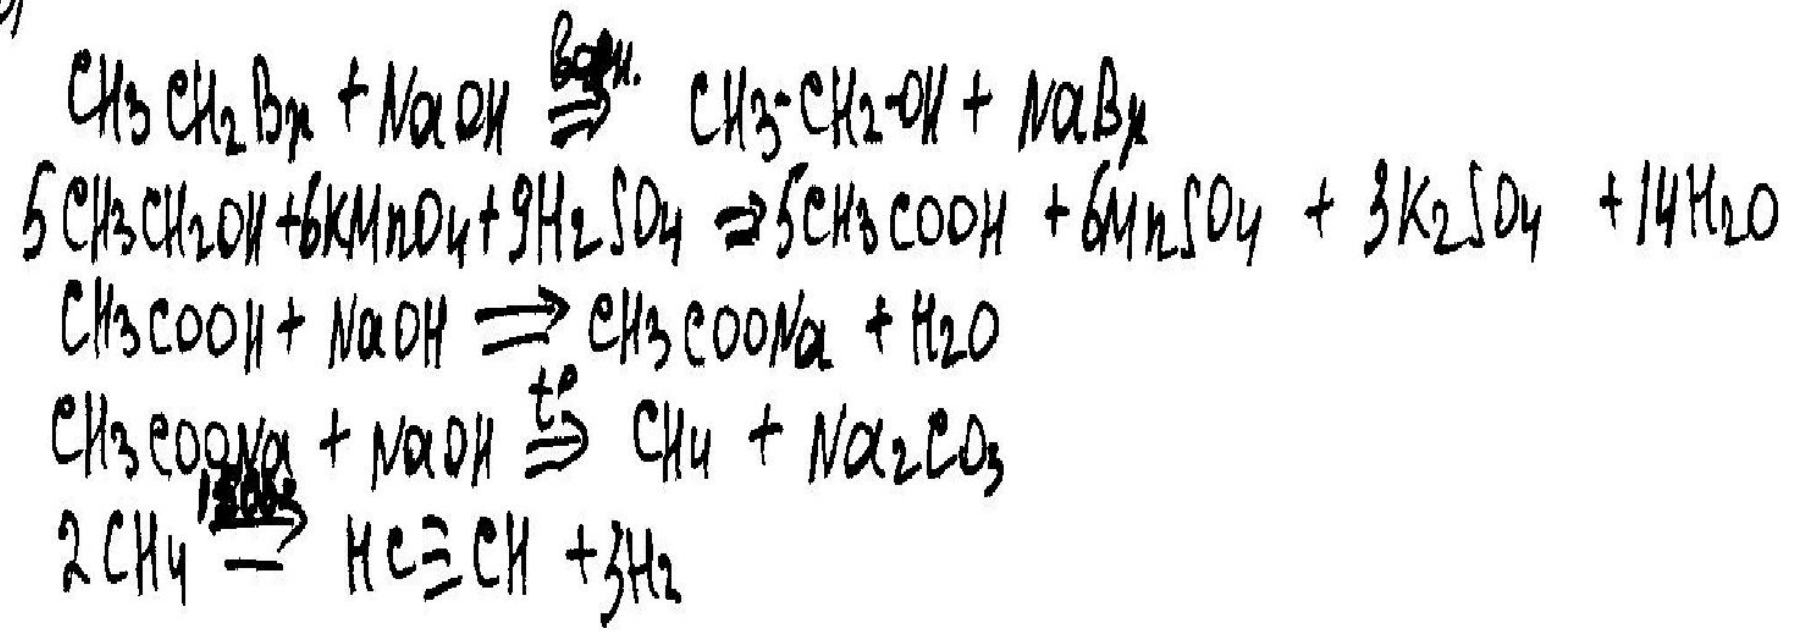 CH3CH2Br + NaOH ⇒ CH3-CH2-OH + NaBr
5CH3CH2OH+6KMnO4+9H2SO4 ⇒ 5CH3COOH + 6MnSO4 + 3K2SO4 + 14H2O
CH3COOH + NaOH ⇒ CH3COONa + H2O
CH3COONa + NaOH t° ⇒ CH4 + Na2CO3
2CH4 ⇒ HC≡CH + 3H2